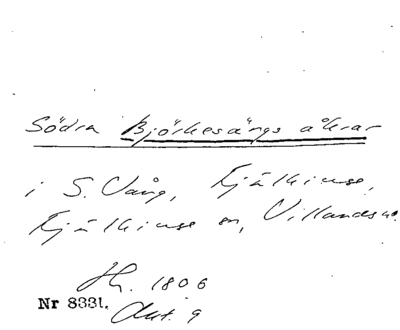 Södra Björkesångs åkrar
i S. Vång, Kjälkinge,
Kjälkinge sn, Villands h.
Hh. 1806
Nr 8331. Akt. 9